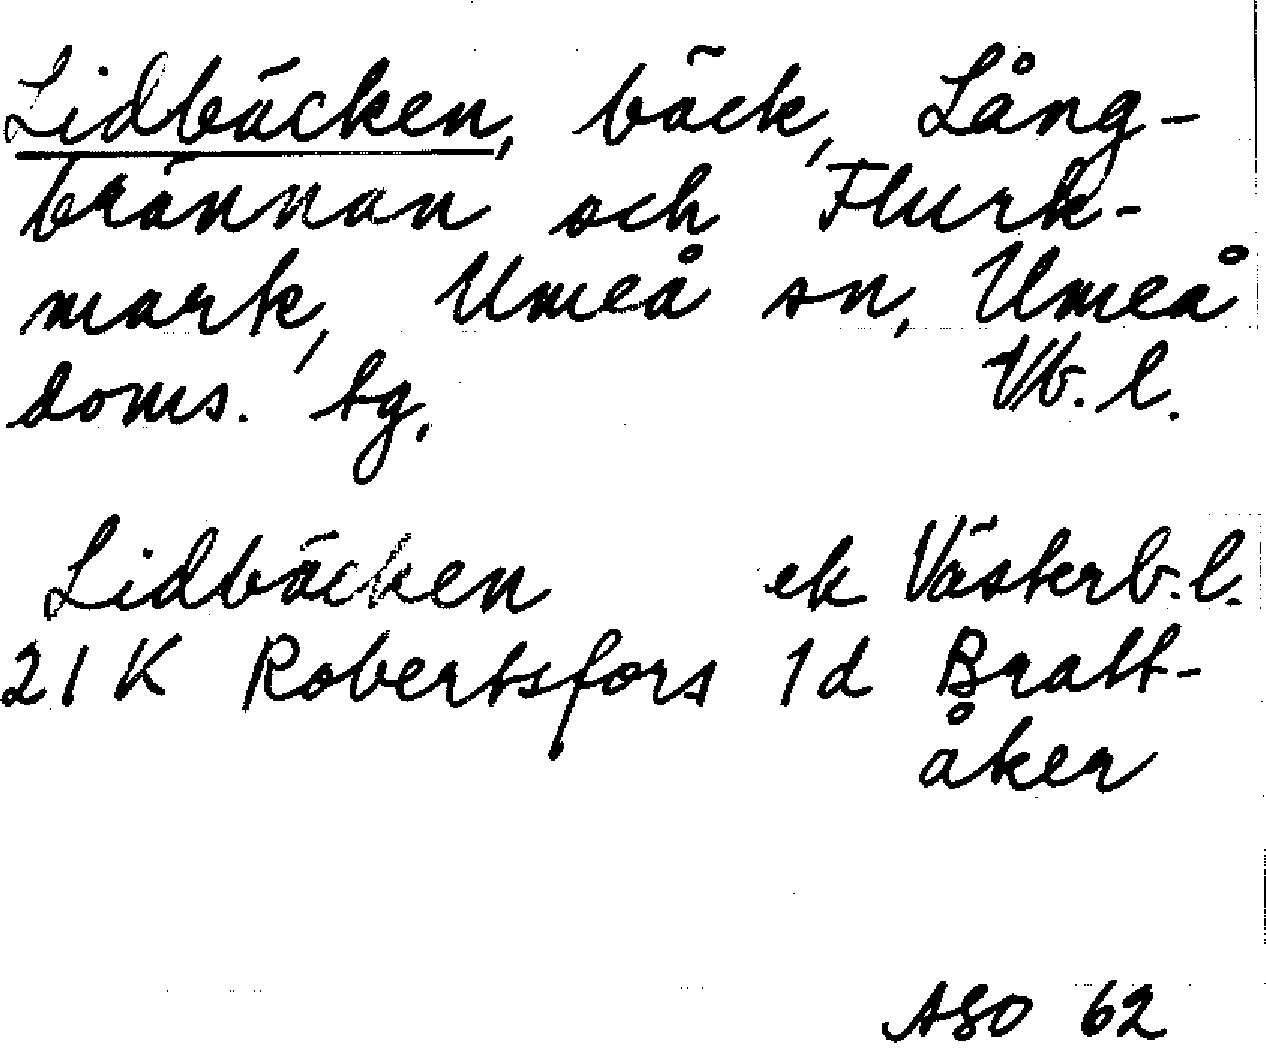 Lidbäcken, bäck, Lång-
brännan och Flurk-
mark, Umeå sn, Umeå
doms. tg. Vb. l.
Lidbäcken ek Västerb. l.
21 K Robertsfors 1 d Bratt-
åker
ASO 62